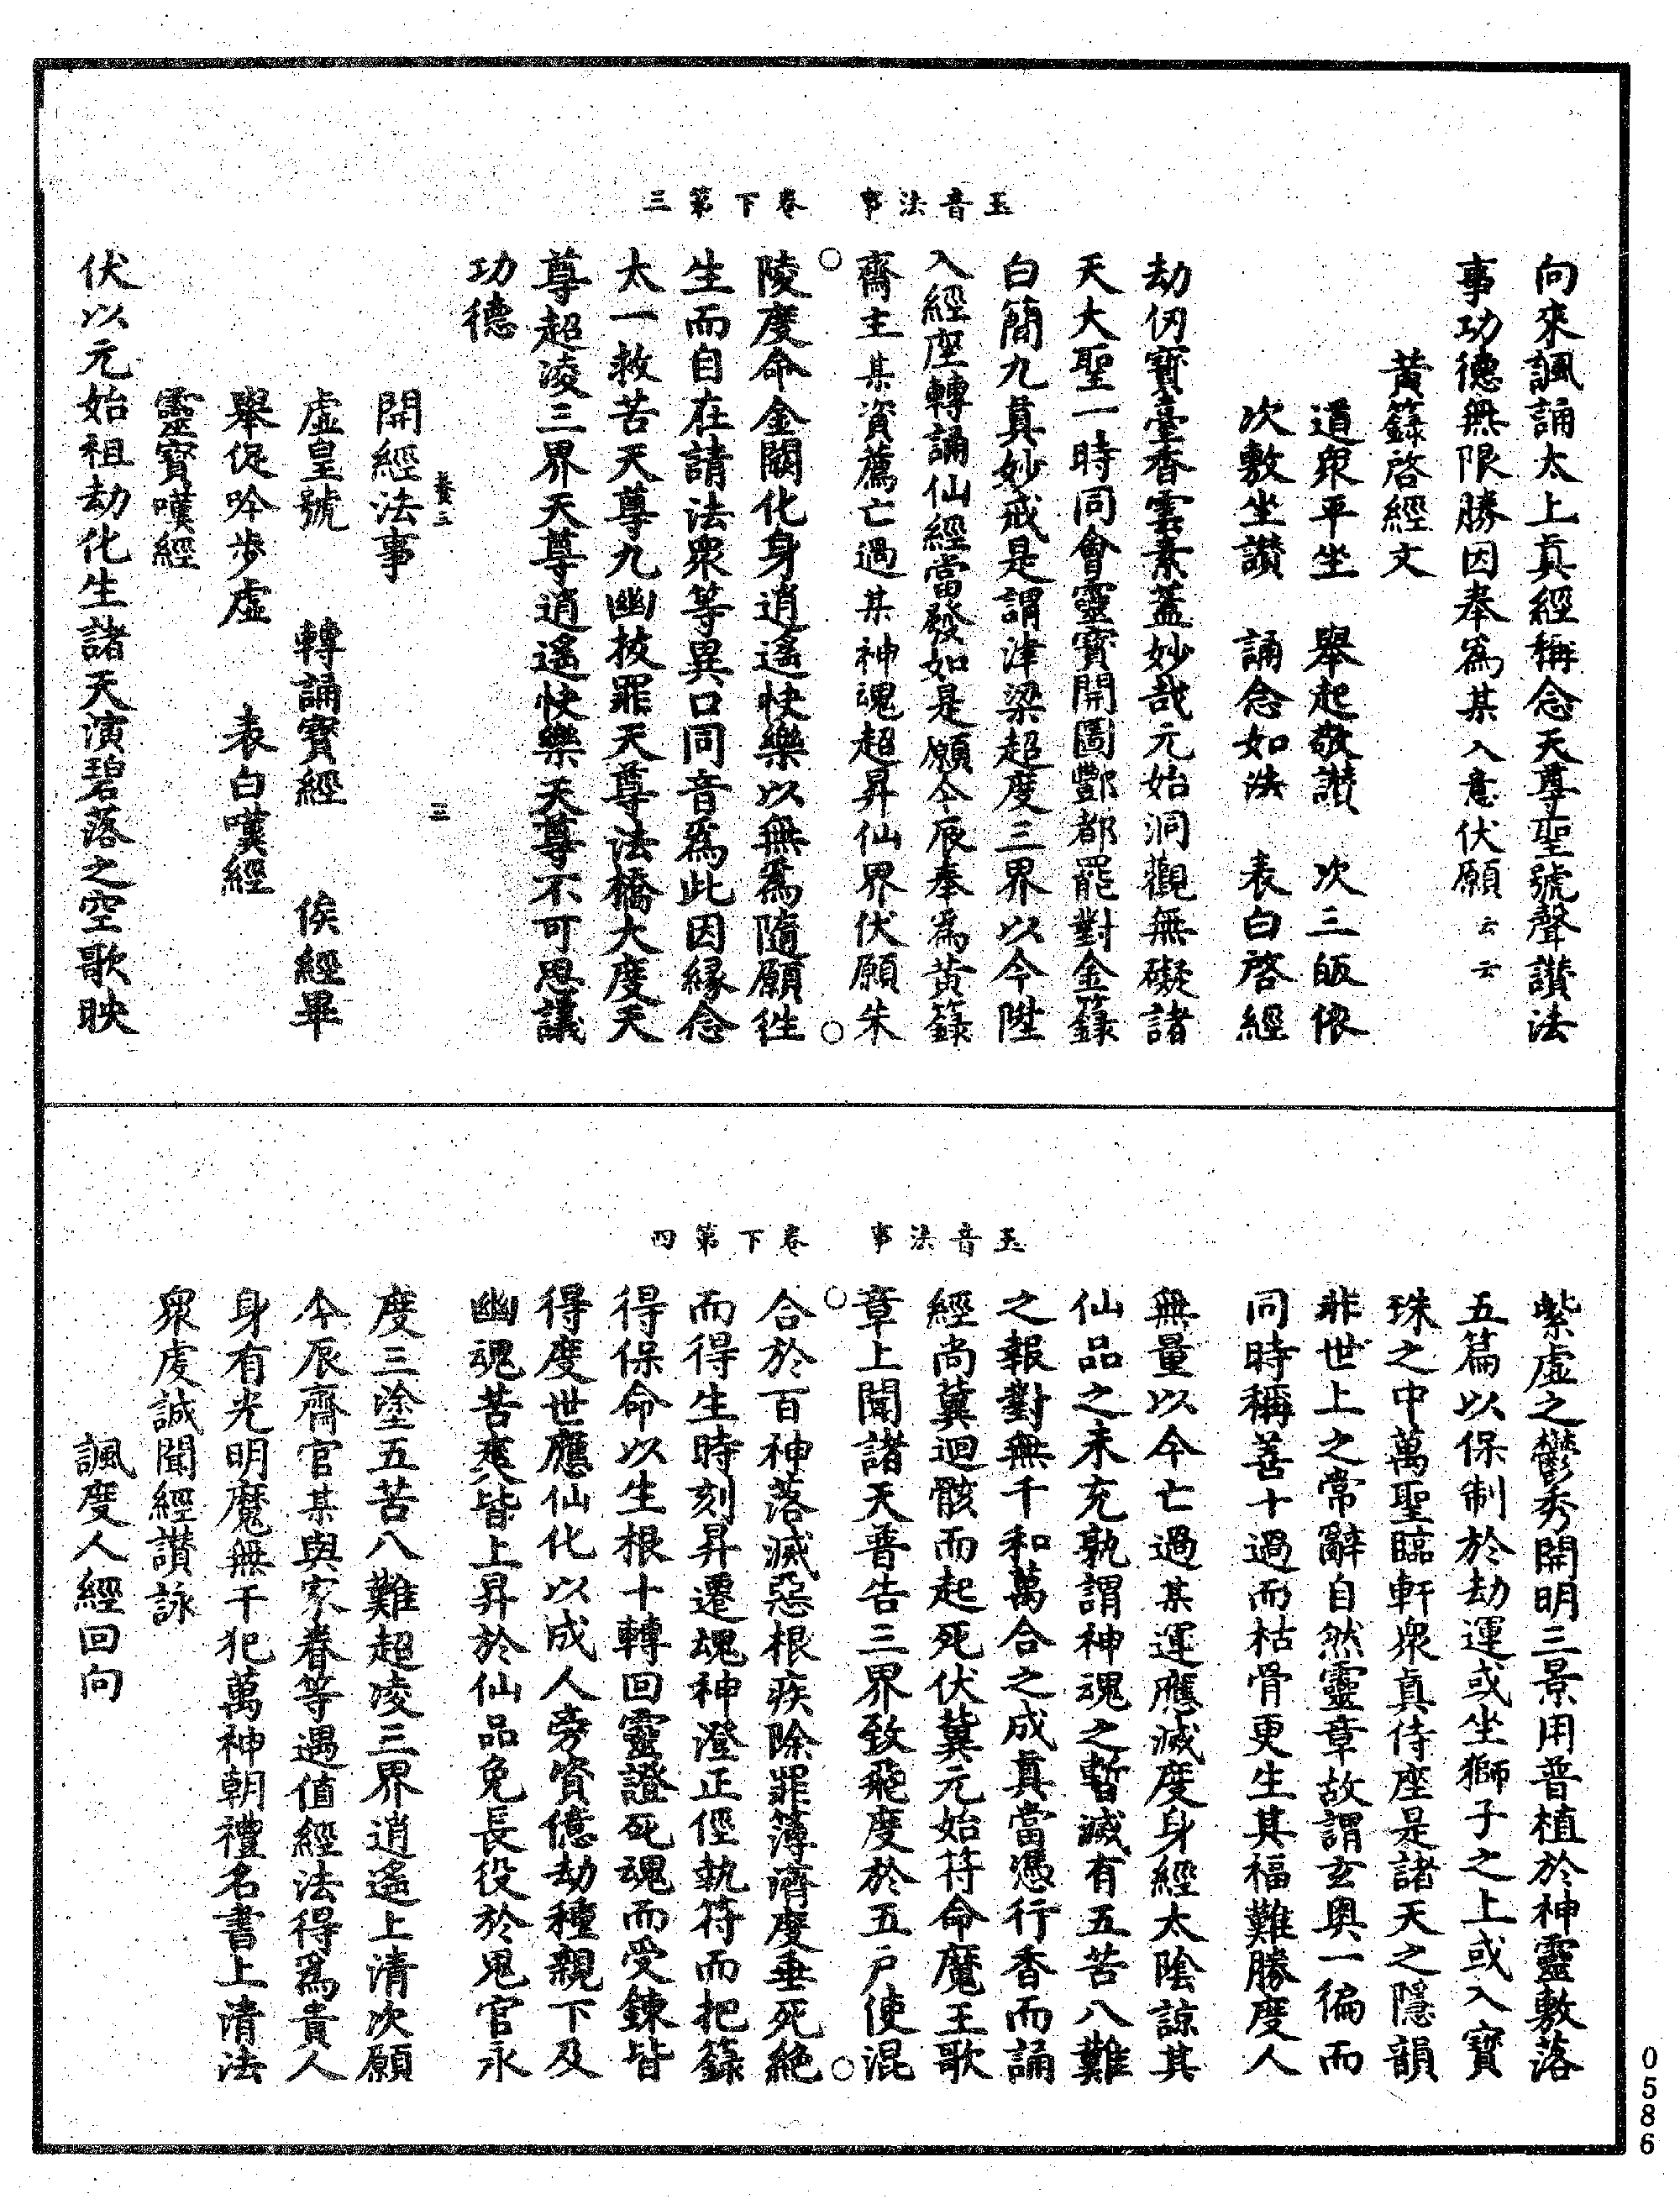 玉音法事　卷下第三
向來諷誦太上真經稱念天尊聖號聲讚法
事功德無限勝因奉爲某入意伏願云云
黃籙啓經文
道衆平坐　舉起敬讚　次三皈依
次敷坐讚　誦念如法　表白啓經
劫仞寶臺香雲素蓋妙哉元始洞觀無礙諸
天大聖一時同會靈寶開圖酆都罷對金籙
白簡九真妙戒是謂津梁超度三界以今陞
入經座轉誦仙經當發如是願今辰奉爲黃籙
齋主某資薦亡過某神魂超昇仙界伏願朱
陵度命金闕化身逍遙快樂以無爲隨願徃
生而自在請法衆等異口同音爲此因緣念
太一救苦天尊九幽拔罪天尊法橋大度天
尊超凌三界天尊逍遙快樂天尊不可思議
功德
養三　三
開經法事
虛皇號　轉誦寶經　俟經畢
舉促吟步虛　表白嘆經
靈寶嘆經
伏以元始祖劫化生諸天演碧落之空歌映
玉音法事　卷下第四
紫虛之鬱秀開明三景用普植於神靈敷落
五篇以保制於劫運或坐獅子之上或入寶
珠之中萬聖臨軒衆真侍座是諸天之隱韻
非世上之常辭自然靈章故謂玄奧一徧而
同時稱善十過而枯骨更生其福難勝度人
無量以今亡過某運應滅度身經太陰諒其
仙品之未充孰謂神魂之暫滅有五苦八難
之報對無千和萬合之成真當憑行香而誦
經尚冀迴骸而起死伏冀元始符命魔王歌
章上聞諸天普告三界致飛度於五戶使混
合於百神落滅惡根疾除罪簿濟度垂死絶
而得生時刻昇遷魂神澄正徑執符而把籙
得保命以生根十轉回靈證死魂而受鍊皆
得度世應仙化以成人旁資億劫種親下及
幽魂苦爽皆上昇於仙品免長役於鬼官永
度三塗五苦八難超凌三界逍遙上清次願
今辰齋官某與家眷等遇值經法得爲貴人
身有光明魔無干犯萬神朝禮名書上清法
衆虔誠聞經讚詠
諷度人經回向
0586